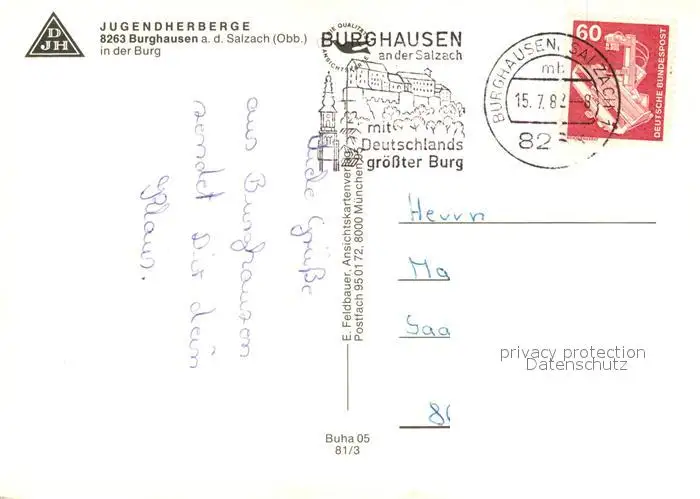 DJH
JUGENDHERBERGE
8263 Burghausen a. d. Salzach (Obb.)
in der Burg
BURGHAUSEN
an der Salzach
mit
Deutschlands
größter Burg
BURGHAUSEN, SALZACH 1
mb
15.7.82
82
60
DEUTSCHE BUNDESPOST
Viele Grüße
aus Burghausen
sendet Dir dein
Klaus.
E. Feldbauer, Ansichtskartenver
Postfach 95 01 72, 8000 München 95
Herrn
Ma
Saa
8
privacy protection
Datenschutz
Buha 05
81/3